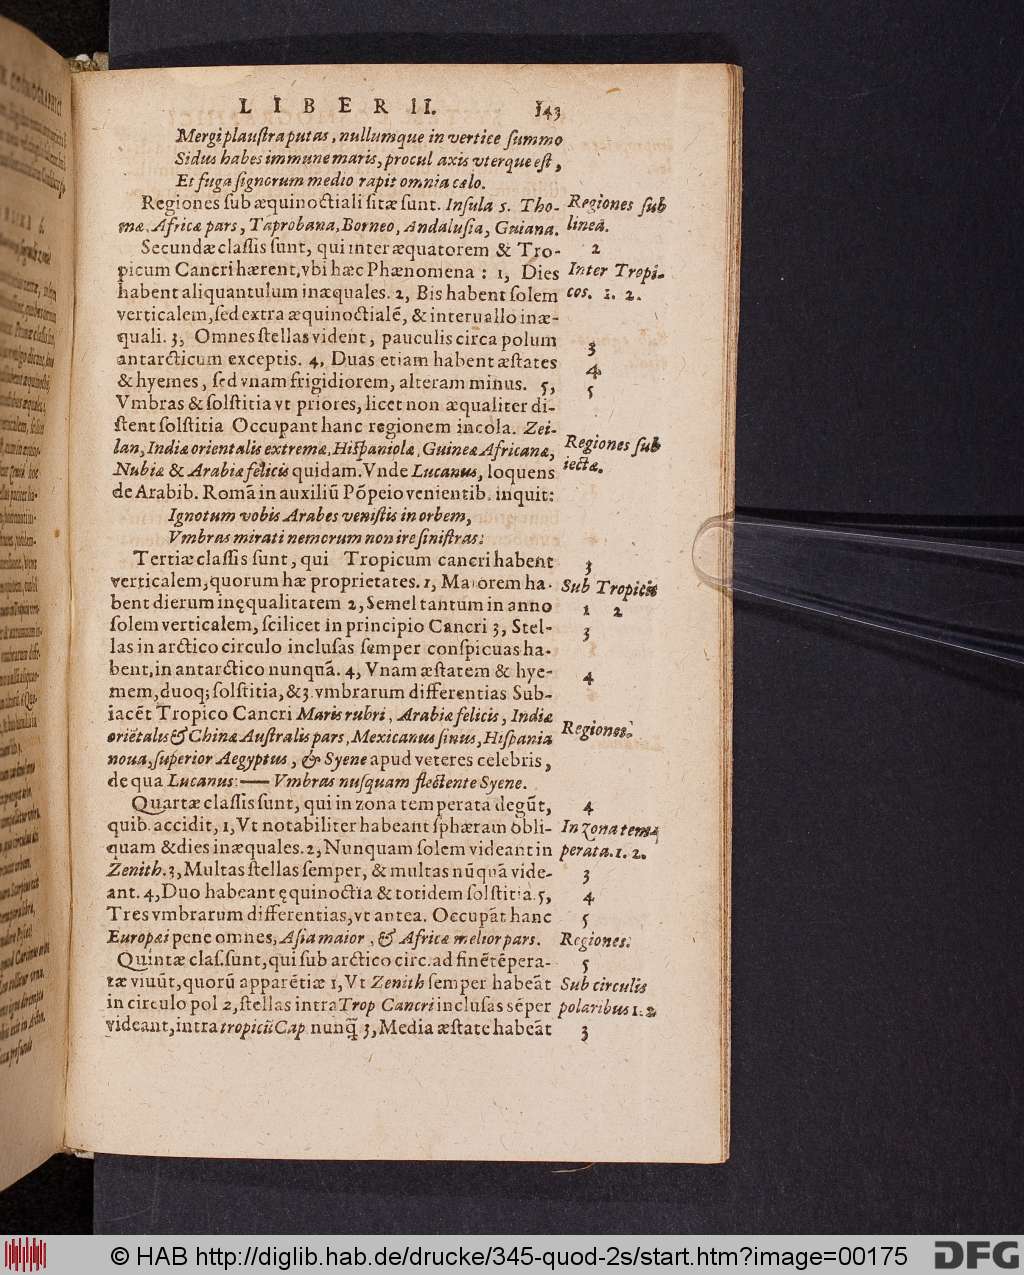 LIBER II. 143
Mergi plauſtra putas, nullumque in vertice ſummo
Sidus habes immune maris, procul axis vterque eſt,
Et fuga ſignorum medio rapit omnia cœlo.
Regiones ſub æquinoctiali ſitæ ſunt. Inſula S. Tho-
mæ, Africæ pars, Taprobana, Borneo, Andaluſia, Guiana.
Regiones ſub
lineâ.
Secundæ claſſis ſunt, qui inter æquatorem & Tro-
picum Cancri hærent, vbi hæc Phænomena: 1, Dies
habent aliquantulum inæquales. 2, Bis habent ſolem
verticalem, ſed extra æquinoctialē, & interuallo inæ-
quali. 3, Omnes ſtellas vident, pauculis circa polum
antarcticum exceptis. 4, Duas etiam habent æſtates
& hyemes, ſed vnam frigidiorem, alteram minus. 5,
Vmbras & ſolſtitia vt priores, licet non æqualiter di-
ſtent ſolſtitia Occupant hanc regionem incolæ. Zei-
lan, Indiæ orientalis extremæ, Hiſpaniolæ, Guineæ Africanæ,
Nubiæ & Arabiæ felicis quidam. Vnde Lucanus, loquens
de Arabib. Romā in auxiliū Pōpeio venientib. inquit:
2
Inter Tropi-
cos. 1. 2.
3
4
5
Regiones ſub
iectæ.
Ignotum vobis Arabes veniſtis in orbem,
Vmbras mirati nemorum non ire ſiniſtras:
Tertiæ claſſis ſunt, qui Tropicum cancri habent
verticalem, quorum hæ proprietates. 1, Maiorem ha-
bent dierum inęqualitatem 2, Semel tantum in anno
ſolem verticalem, ſcilicet in principio Cancri 3, Stel-
las in arctico circulo incluſas ſemper conſpicuas ha-
bent, in antarctico nunquā. 4, Vnam æſtatem & hye-
mem, duoq; ſolſtitia, & 3 vmbrarum differentias Sub-
iacēt Tropico Cancri Maris rubri, Arabiæ felicis, Indiæ
oriētalis & Chinæ Auſtralis pars, Mexicanus ſinus, Hiſpania
noua, ſuperior Aegyptus, & Syene apud veteres celebris,
de qua Lucanus: —— Vmbras nuſquam flectente Syene.
3
Sub Tropicis
1 2
3
4
Regiones.
Quartæ claſſis ſunt, qui in zona temperata degūt,
quib. accidit, 1, Vt notabiliter habeant ſphæram obli-
quam & dies inæquales. 2, Nunquam ſolem videant in
Zenith. 3, Multas ſtellas ſemper, & multas nūquā vide-
ant. 4, Duo habeant ęquinoctia & totidem ſolſtitia. 5,
Tres vmbrarum differentias, vt antea. Occupāt hanc
Europæi pene omnes, Aſia maior, & Africæ melior pars.
4
In zona tem-
perata. 1. 2.
3
4
5
Regiones.
Quintæ claſ. ſunt, qui ſub arctico circ. ad finē tēpera-
tæ viuūt, quorū apparētiæ 1, Vt Zenith ſemper habeāt
in circulo pol 2, ſtellas intra Trop Cancri incluſas sēper
videant, intra tropicū Cap nunq̄ 3, Media æſtate habeāt
5
Sub circulis
polaribus 1. 2
3
© HAB http://diglib.hab.de/drucke/345-quod-2s/start.htm?image=00175
DFG